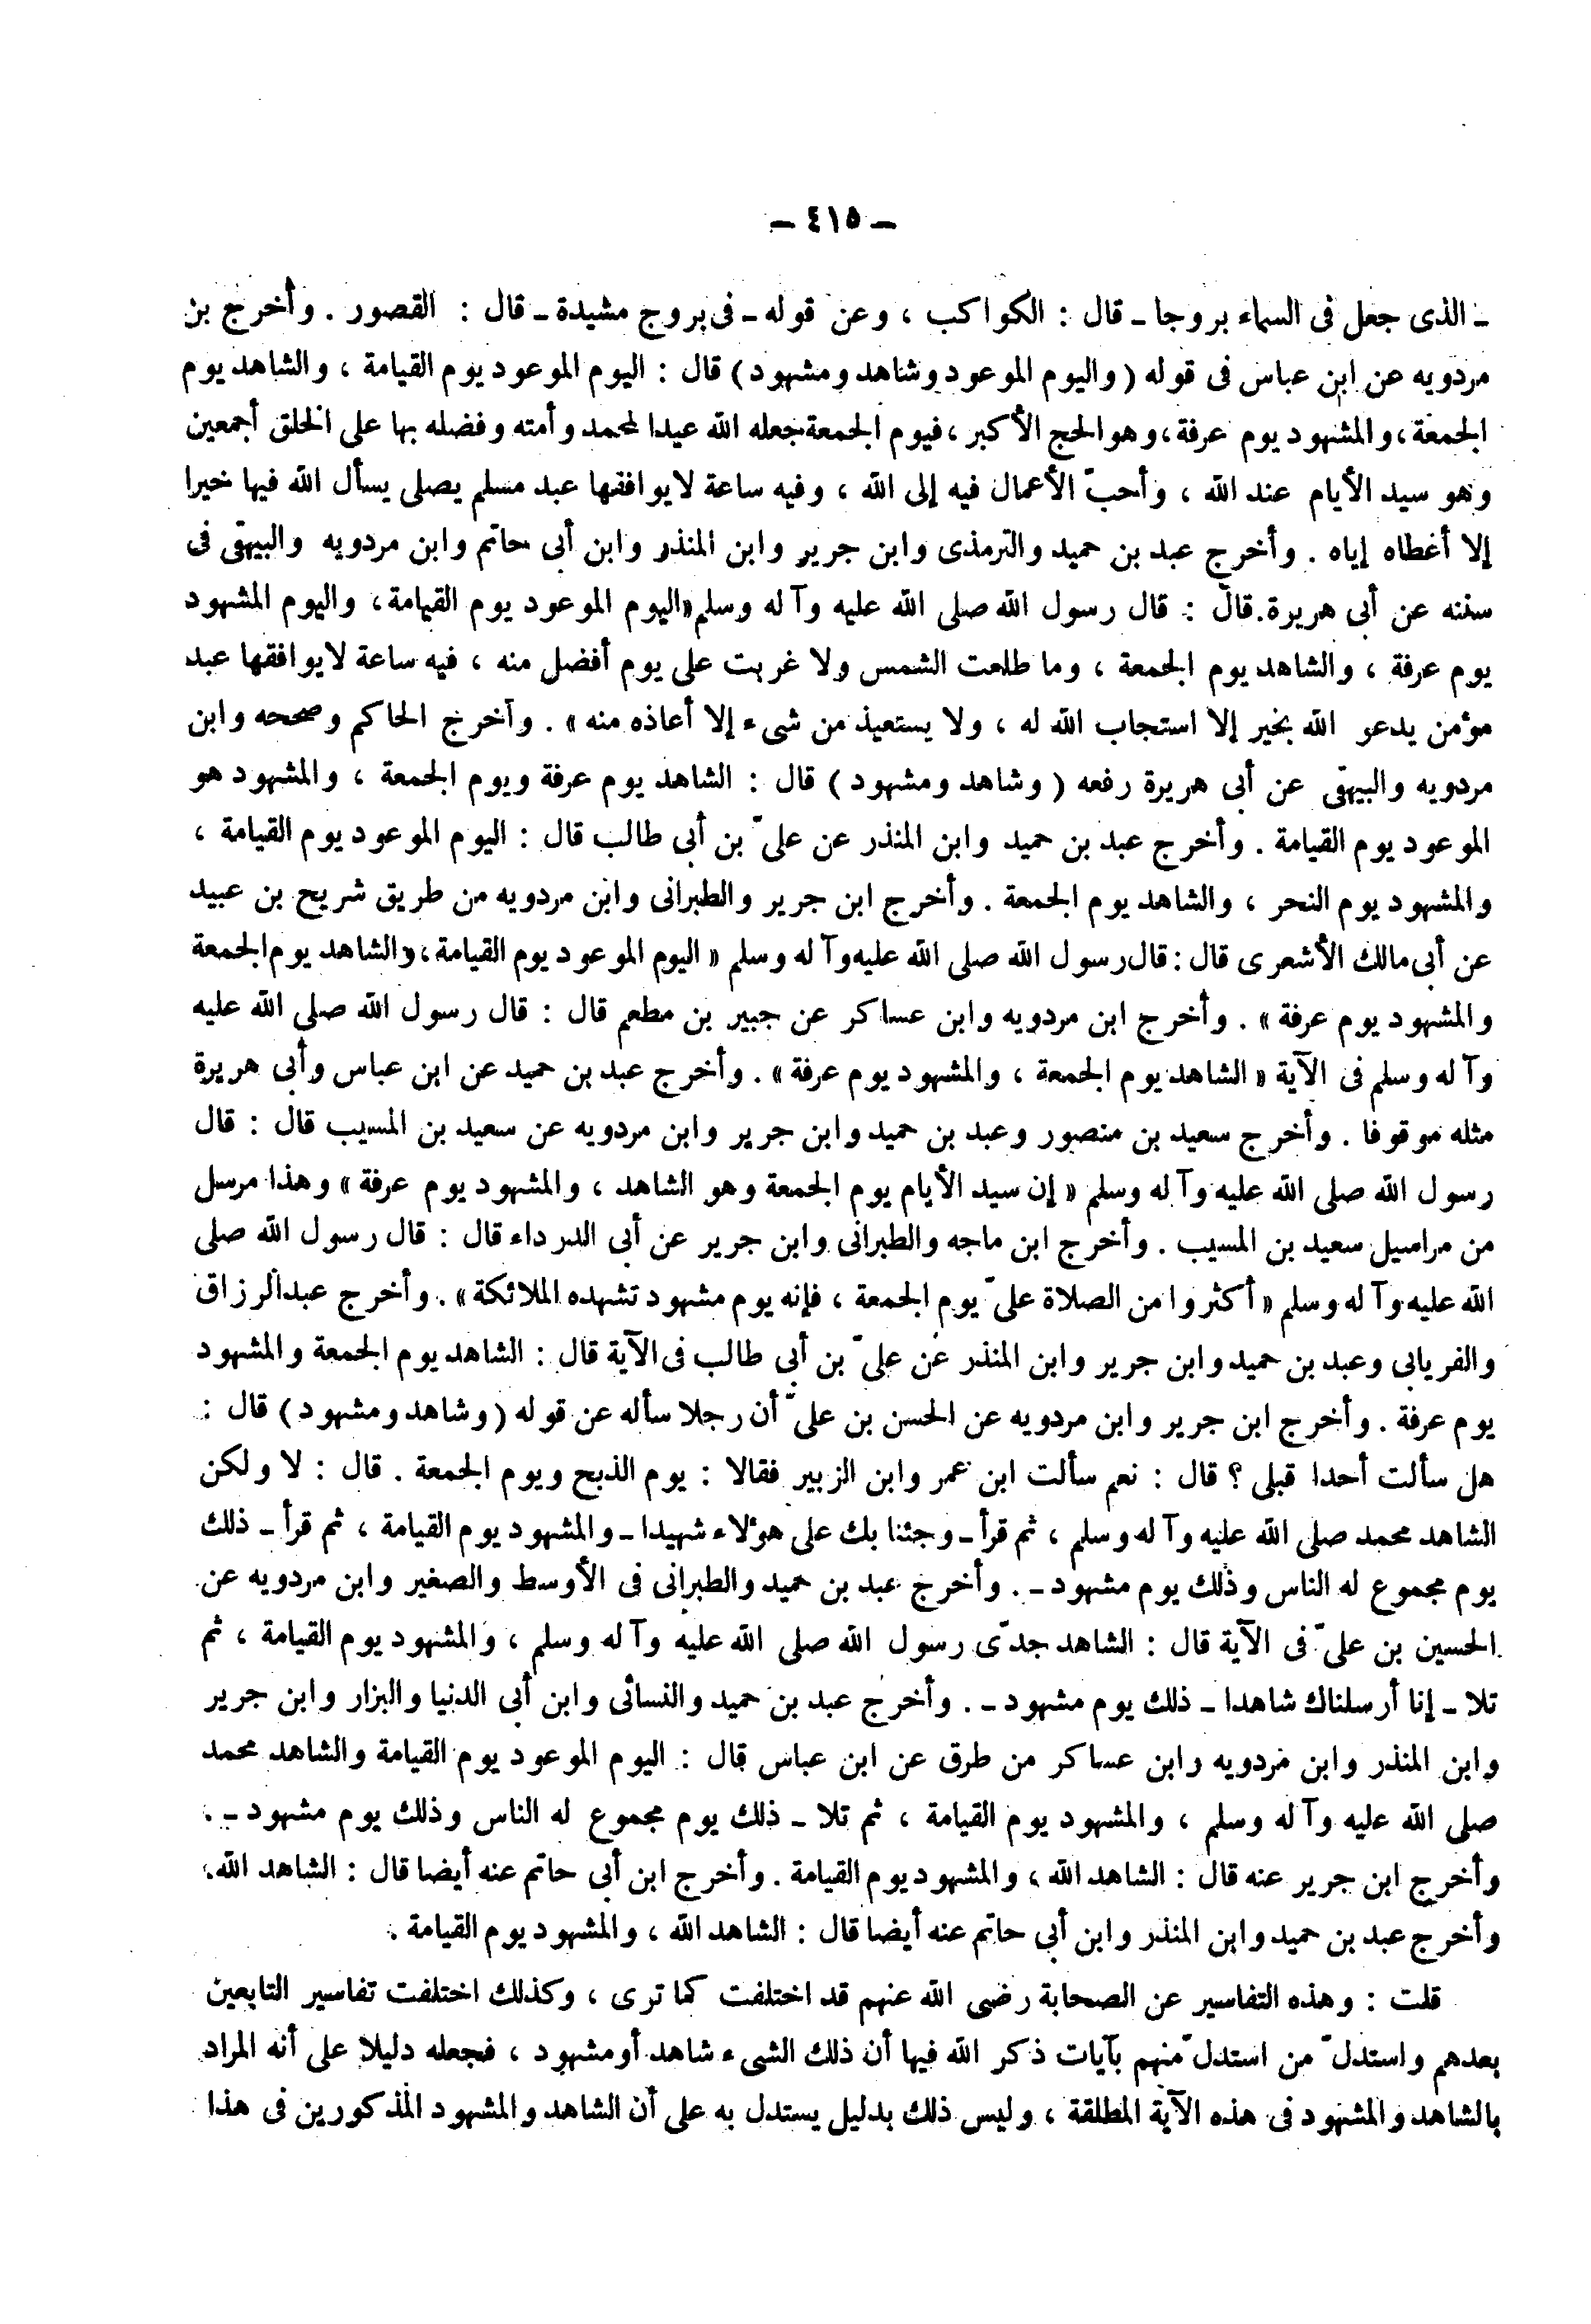 – ٤١٥ –
ـ الذى جعل فى السماء بروجا ـ قال : الكواكب ، وعن قوله ـ فى بروج مشيدة ـ قال : القصور . وأخرج بن
مردويه عن ابن عباس فى قوله ( واليوم الموعود وشاهد ومشهود ) قال : اليوم الموعود يوم القيامة ، والشاهد يوم
الجمعة ، والمشهود يوم عرفة ، وهو الحج الأكبر ، فيوم الجمعة جعله الله عيدا لمحمد وأمته وفضله بها على الخلق أجمعين
وهو سيد الأيام عند الله ، وأحبّ الأعمال فيه إلى الله ، وفيه ساعة لا يوافقها عبد مسلم يصلى يسأل الله فيها خيرا
إلا أعطاه إياه . وأخرج عبد بن حميد والترمذى وابن جرير وابن المنذر وابن أبى حاتم وابن مردويه والبيهقى فى
سننه عن أبى هريرة . قال : قال رسول الله صلى الله عليه وآ له وسلم « اليوم الموعود يوم القيامة ، واليوم المشهود
يوم عرفة ، والشاهد يوم الجمعة ، وما طلعت الشمس ولا غربت على يوم أفضل منه ، فيه ساعة لا يوافقها عبد
مؤمن يدعو الله بخير إلا استجاب الله له ، ولا يستعيذ من شىء إلا أعاذه منه » . وأخرج الحاكم وصححه وابن
مردويه والبيهقى عن أبى هريرة رفعه ( وشاهد ومشهود ) قال : الشاهد يوم عرفة ويوم الجمعة ، والمشهود هو
الموعود يوم القيامة . وأخرج عبد بن حميد وابن المنذر عن علىّ بن أبى طالب قال : اليوم الموعود يوم القيامة ،
والمشهود يوم النحر ، والشاهد يوم الجمعة . وأخرج ابن جرير والطبرانى وابن مردويه من طريق شريح بن عبيد
عن أبى مالك الأشعرى قال : قال رسول الله صلى الله عليه وآ له وسلم « اليوم الموعود يوم القيامة ، والشاهد يوم الجمعة
والمشهود يوم عرفة » . وأخرج ابن مردويه وابن عساكر عن جبير بن مطعم قال : قال رسول الله صلى الله عليه
وآ له وسلم فى الآية « الشاهد يوم الجمعة ، والمشهود يوم عرفة » . وأخرج عبد بن حميد عن ابن عباس وأبى هريرة
مثله موقوفا . وأخرج سعيد بن منصور وعبد بن حميد وابن جرير وابن مردويه عن سعيد بن المسيب قال : قال
رسول الله صلى الله عليه وآ له وسلم « إن سيد الأيام يوم الجمعة وهو الشاهد ، والمشهود يوم عرفة » وهذا مرسل
من مراسيل سعيد بن المسيب . وأخرج ابن ماجه والطبرانى وابن جرير عن أبى الدرداء قال : قال رسول الله صلى
الله عليه وآ له وسلم « أكثروا من الصلاة علىّ يوم الجمعة ، فإنه يوم مشهود تشهده الملائكة » . وأخرج عبدالرزاق
والفريابى وعبد بن حميد وابن جرير وابن المنذر عن علىّ بن أبى طالب فى الآية قال : الشاهد يوم الجمعة والمشهود
يوم عرفة . وأخرج ابن جرير وابن مردويه عن الحسن بن علىّ أن رجلا سأله عن قوله ( وشاهد ومشهود ) قال :
هل سألت أحدا قبلى ؟ قال : نعم سألت ابن عمر وابن الزبير فقالا : يوم الذبح ويوم الجمعة . قال : لا ولكن
الشاهد محمد صلى الله عليه وآ له وسلم ، ثم قرأ ـ وجئنا بك على هؤلاء شهيدا ـ والمشهود يوم القيامة ، ثم قرأ ـ ذلك
يوم مجموع له الناس وذلك يوم مشهود ـ . وأخرج عبد بن حميد والطبرانى فى الأوسط والصغير وابن مردويه عن
الحسين بن علىّ فى الآية قال : الشاهد جدّى رسول الله صلى الله عليه وآ له وسلم ، والمشهود يوم القيامة ، ثم
تلا ـ إنا أرسلناك شاهدا ـ ذلك يوم مشهود ـ . وأخرج عبد بن حميد والنسائى وابن أبى الدنيا والبزار وابن جرير
وابن المنذر وابن مردويه وابن عساكر من طرق عن ابن عباس قال : اليوم الموعود يوم القيامة والشاهد محمد
صلى الله عليه وآ له وسلم ، والمشهود يوم القيامة ، ثم تلا ـ ذلك يوم مجموع له الناس وذلك يوم مشهود ـ .
وأخرج ابن جرير عنه قال : الشاهد الله ، والمشهود يوم القيامة . وأخرج ابن أبى حاتم عنه أيضا قال : الشاهد الله .
وأخرج عبد بن حميد وابن المنذر وابن أبى حاتم عنه أيضا قال : الشاهد الله ، والمشهود يوم القيامة .
قلت : وهذه التفاسير عن الصحابة رضى الله عنهم قد اختلفت كما ترى ، وكذلك اختلفت تفاسير التابعين
بعدهم واستدلّ من استدلّ منهم بآيات ذكر الله فيها أن ذلك الشىء شاهد أو مشهود ، فجعله دليلا على أنه المراد
بالشاهد والمشهود فى هذه الآية المطلقة ، وليس ذلك بدليل يستدل به على أن الشاهد والمشهود المذكورين فى هذا